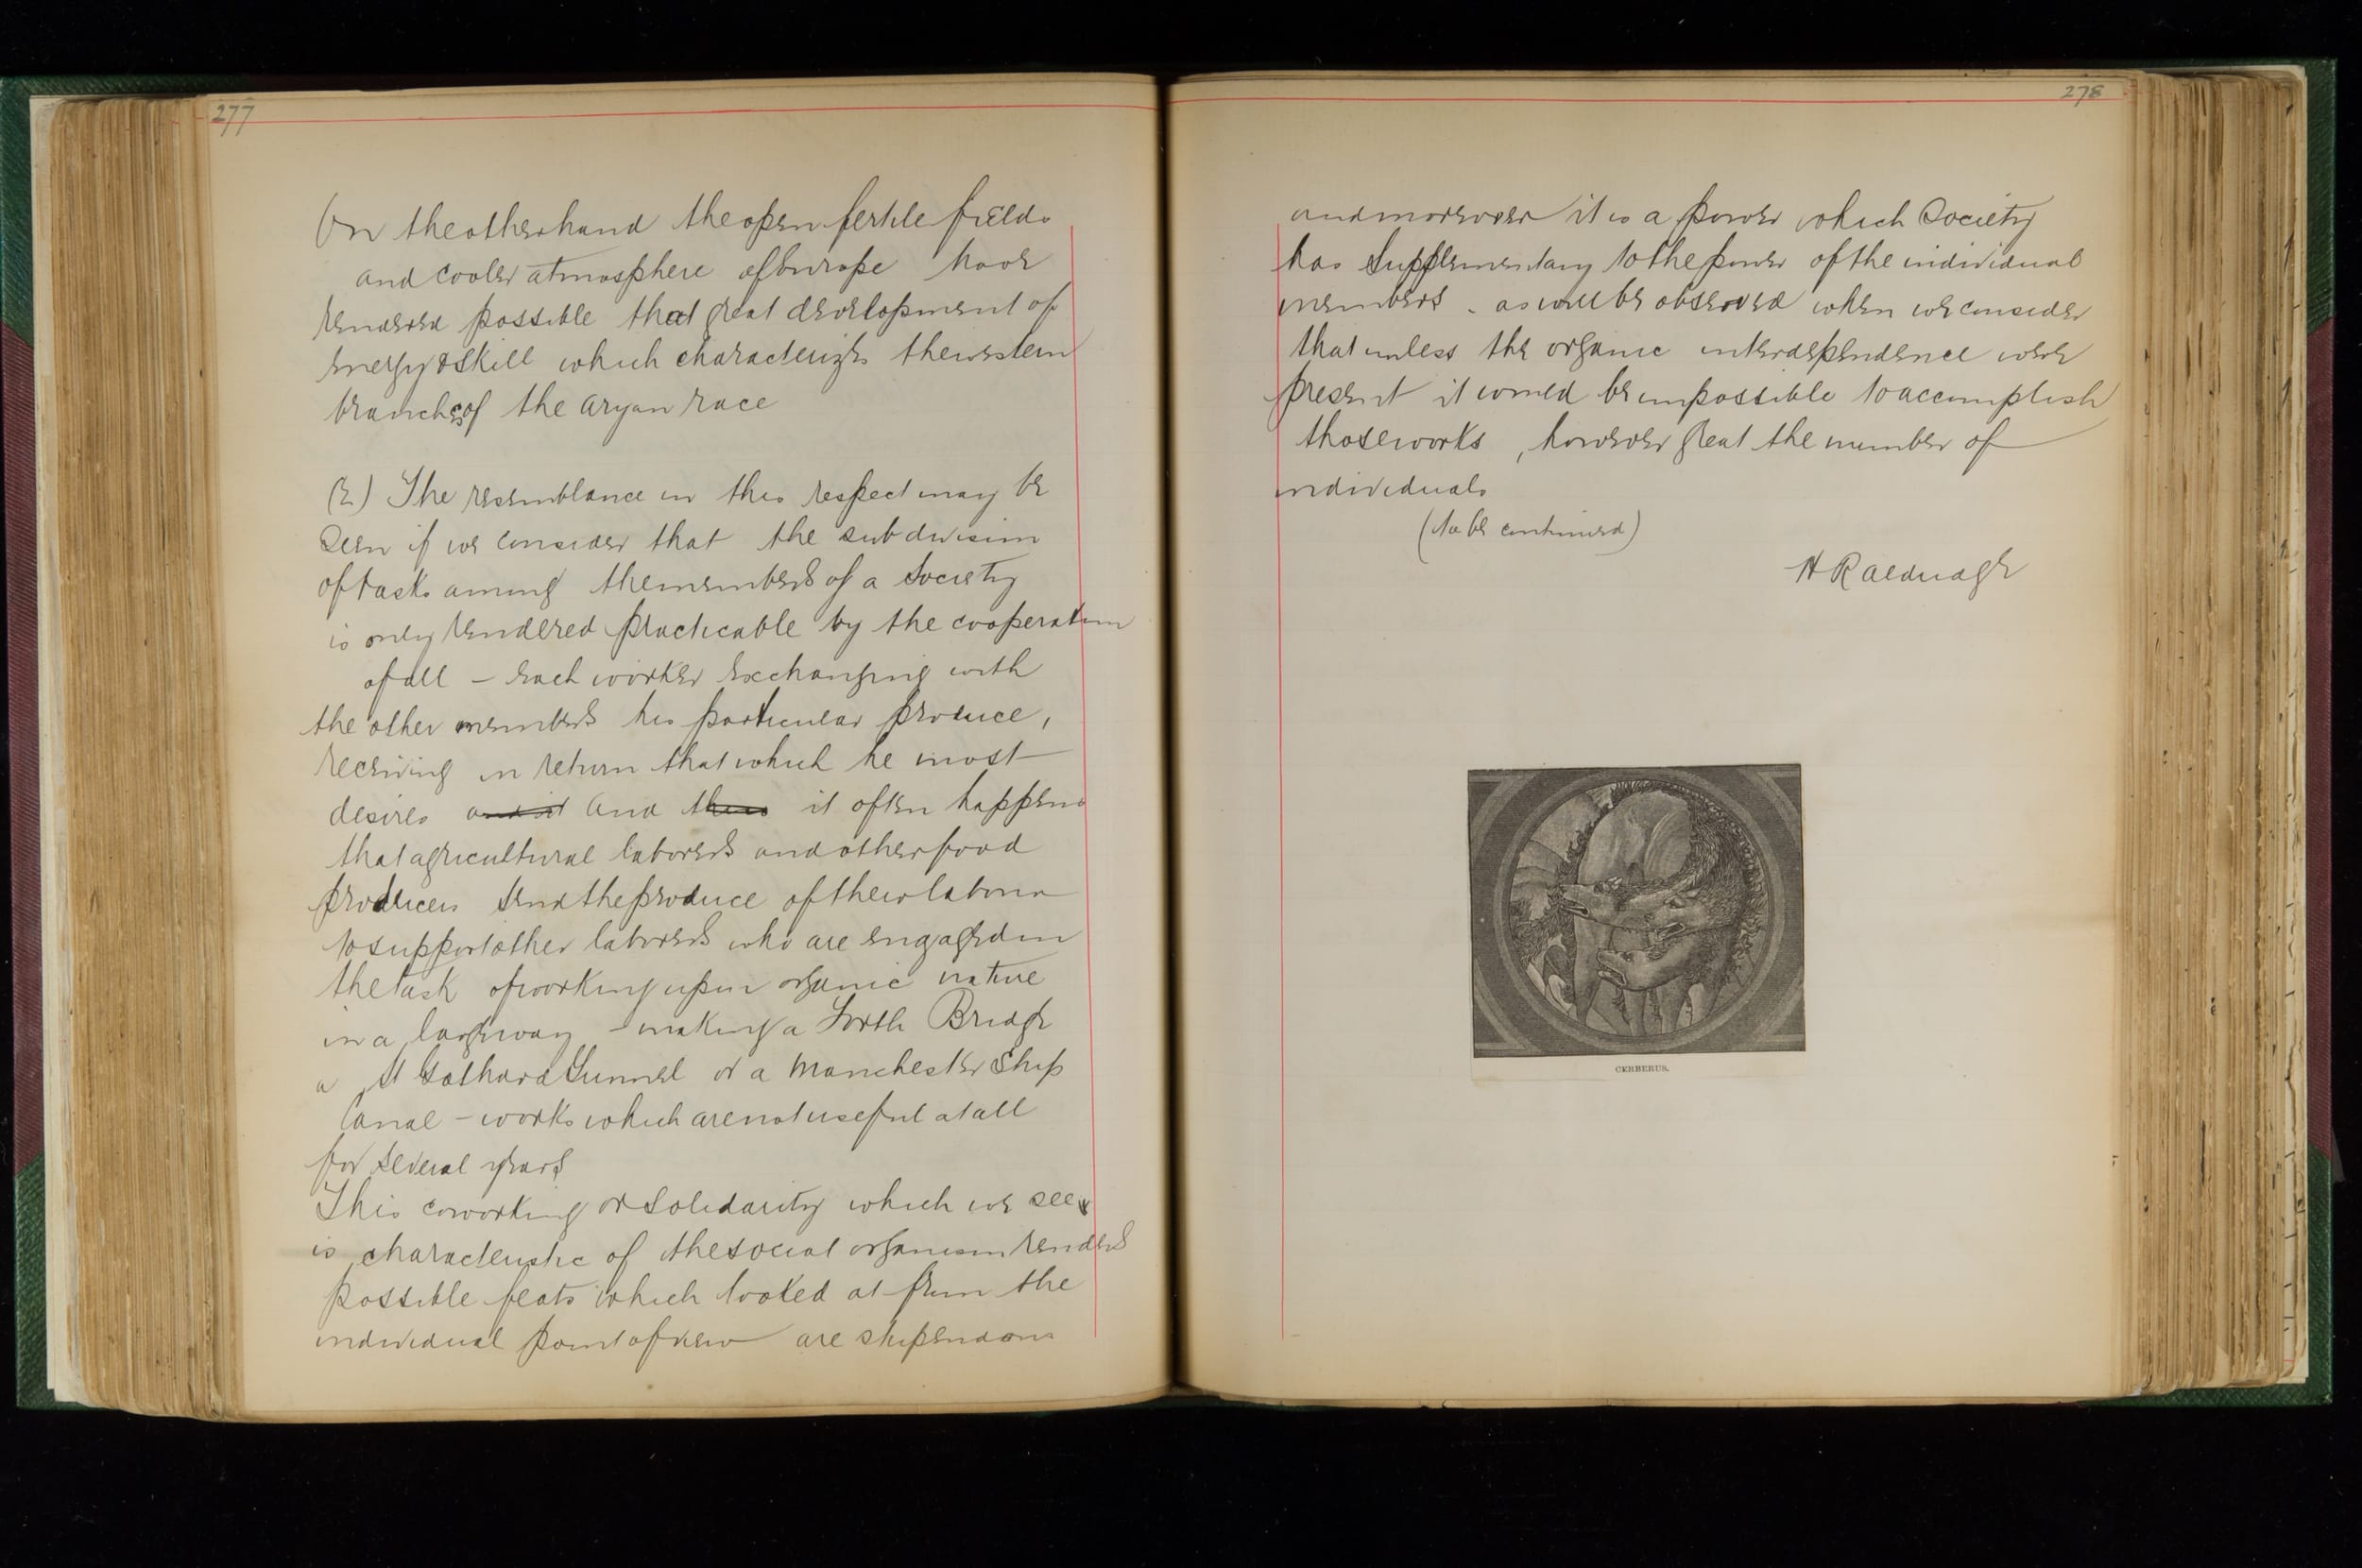 277
On the other hand the open fertile fields
and cooler atmosphere of Europe have
rendered possible that great development of
energy & skill which characterizes the western
branches of the Aryan race
(2) The resemblance in this respect may be
seen if we consider that the subdivision
of tasks among the members of a society
is only rendered practicable by the cooperation
of all – each worker exchanging with
the other members his particular produce,
receiving in return that which he most
desires and it and thus it often happens
that agricultural laborers and other food
producers send the produce of their labour
to support other laborers who are engaged in
the task of working upon organic nature
in a large way – making a Forth Bridge
a St Gothard Tunnel or a Manchester Ship
Canal – works which are not useful at all
for several years
This coworking or solidarity which we see
is characteristic of the social organism renders
possible feats which looked at from the
individual point of view are stupendous
278
and moreover it is a power which Society
has supplementary to the power of the individual
members. as will be observed when we consider
that unless the organic interdependence were
present it would be impossible to accomplish
those works, however great the number of
individuals
(to be continued)
H R Aldridge
CERBERUS.